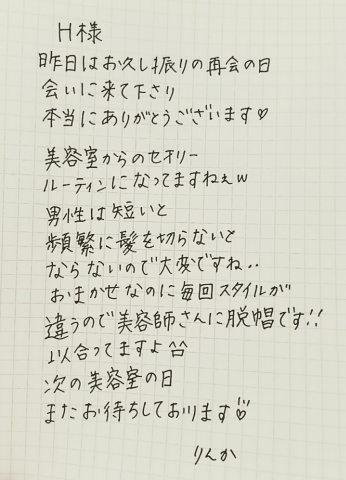 H様
昨日はお久し振りの再会の日
会いに来て下さり
本当にありがとうございます♡
美容室からのセオリー
ルーティンになってますねぇw
男性は短いと
頻繁に髪を切らないと
ならないので大変ですね..
おまかせなのに毎回スタイルが
違うので美容師さんに脱帽です!!
似合ってますよ^^
次の美容室の日
またお待ちしております♡
りんか